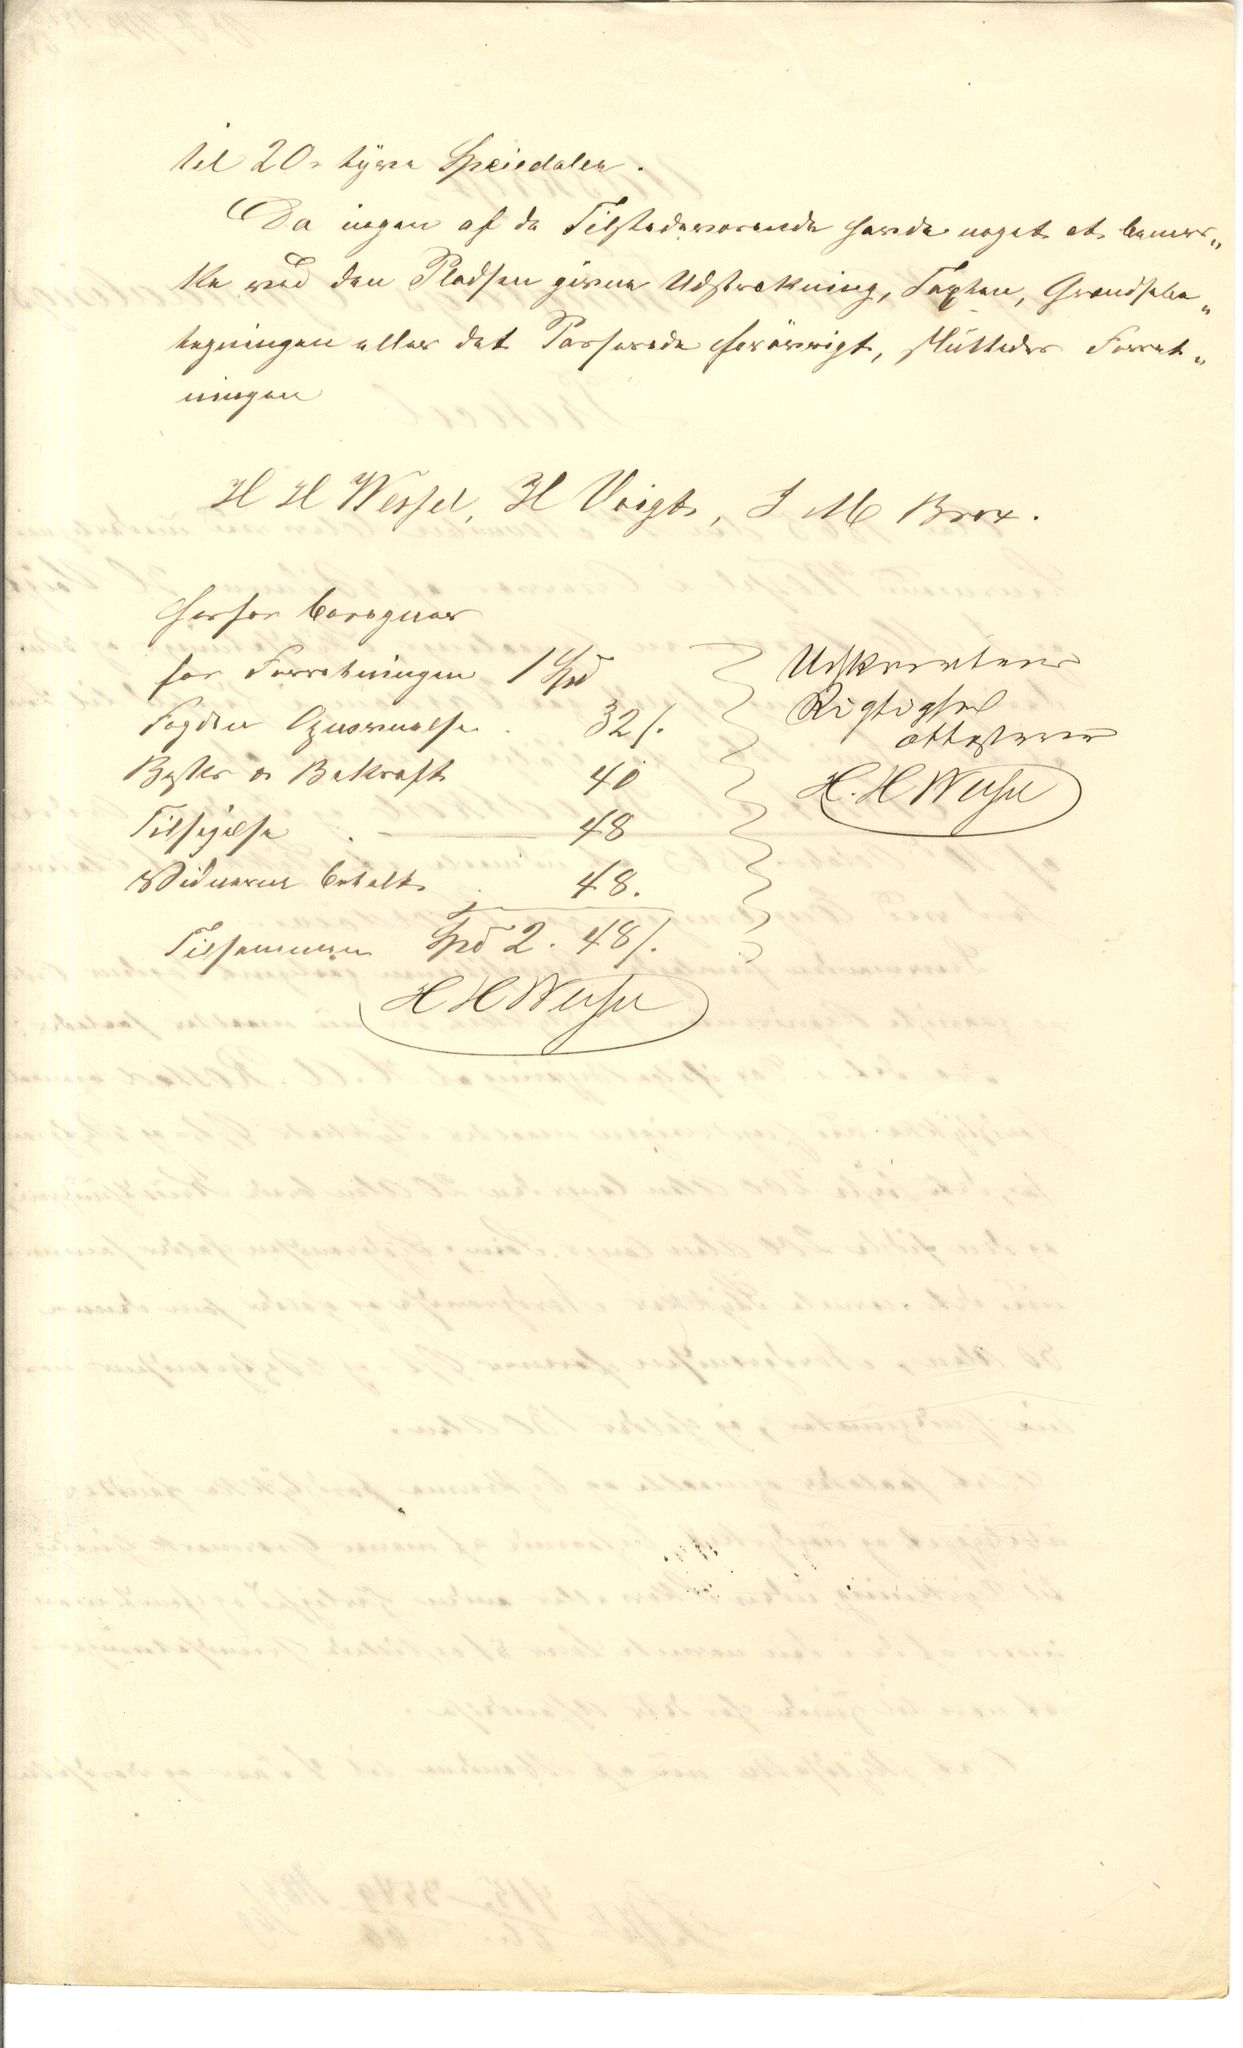 til 20 - tyve Speciedaler.
Da ingen af de Tilstedeværende havde noget at bemær„
ke ved den Pladsen givne Udstrekning, Taxten, Grændsebe„
tegningen eller det Passerede forövrigt, sluttedes Forret„
ningen
H H Wessel, H Voigt, J M Brox.
Herfor beregnes
for Forretningen 1 Spd
Fogdens Opnævnelse . 32 /.
Besks og Bekræft 40
Tilsigelse . — 48
Vidnerne betalt . 48.
Tilsammen Spd 2. 48 /.
H H Wessel
Udskriftens
Rigtighed
attesterer
H. H Wessel